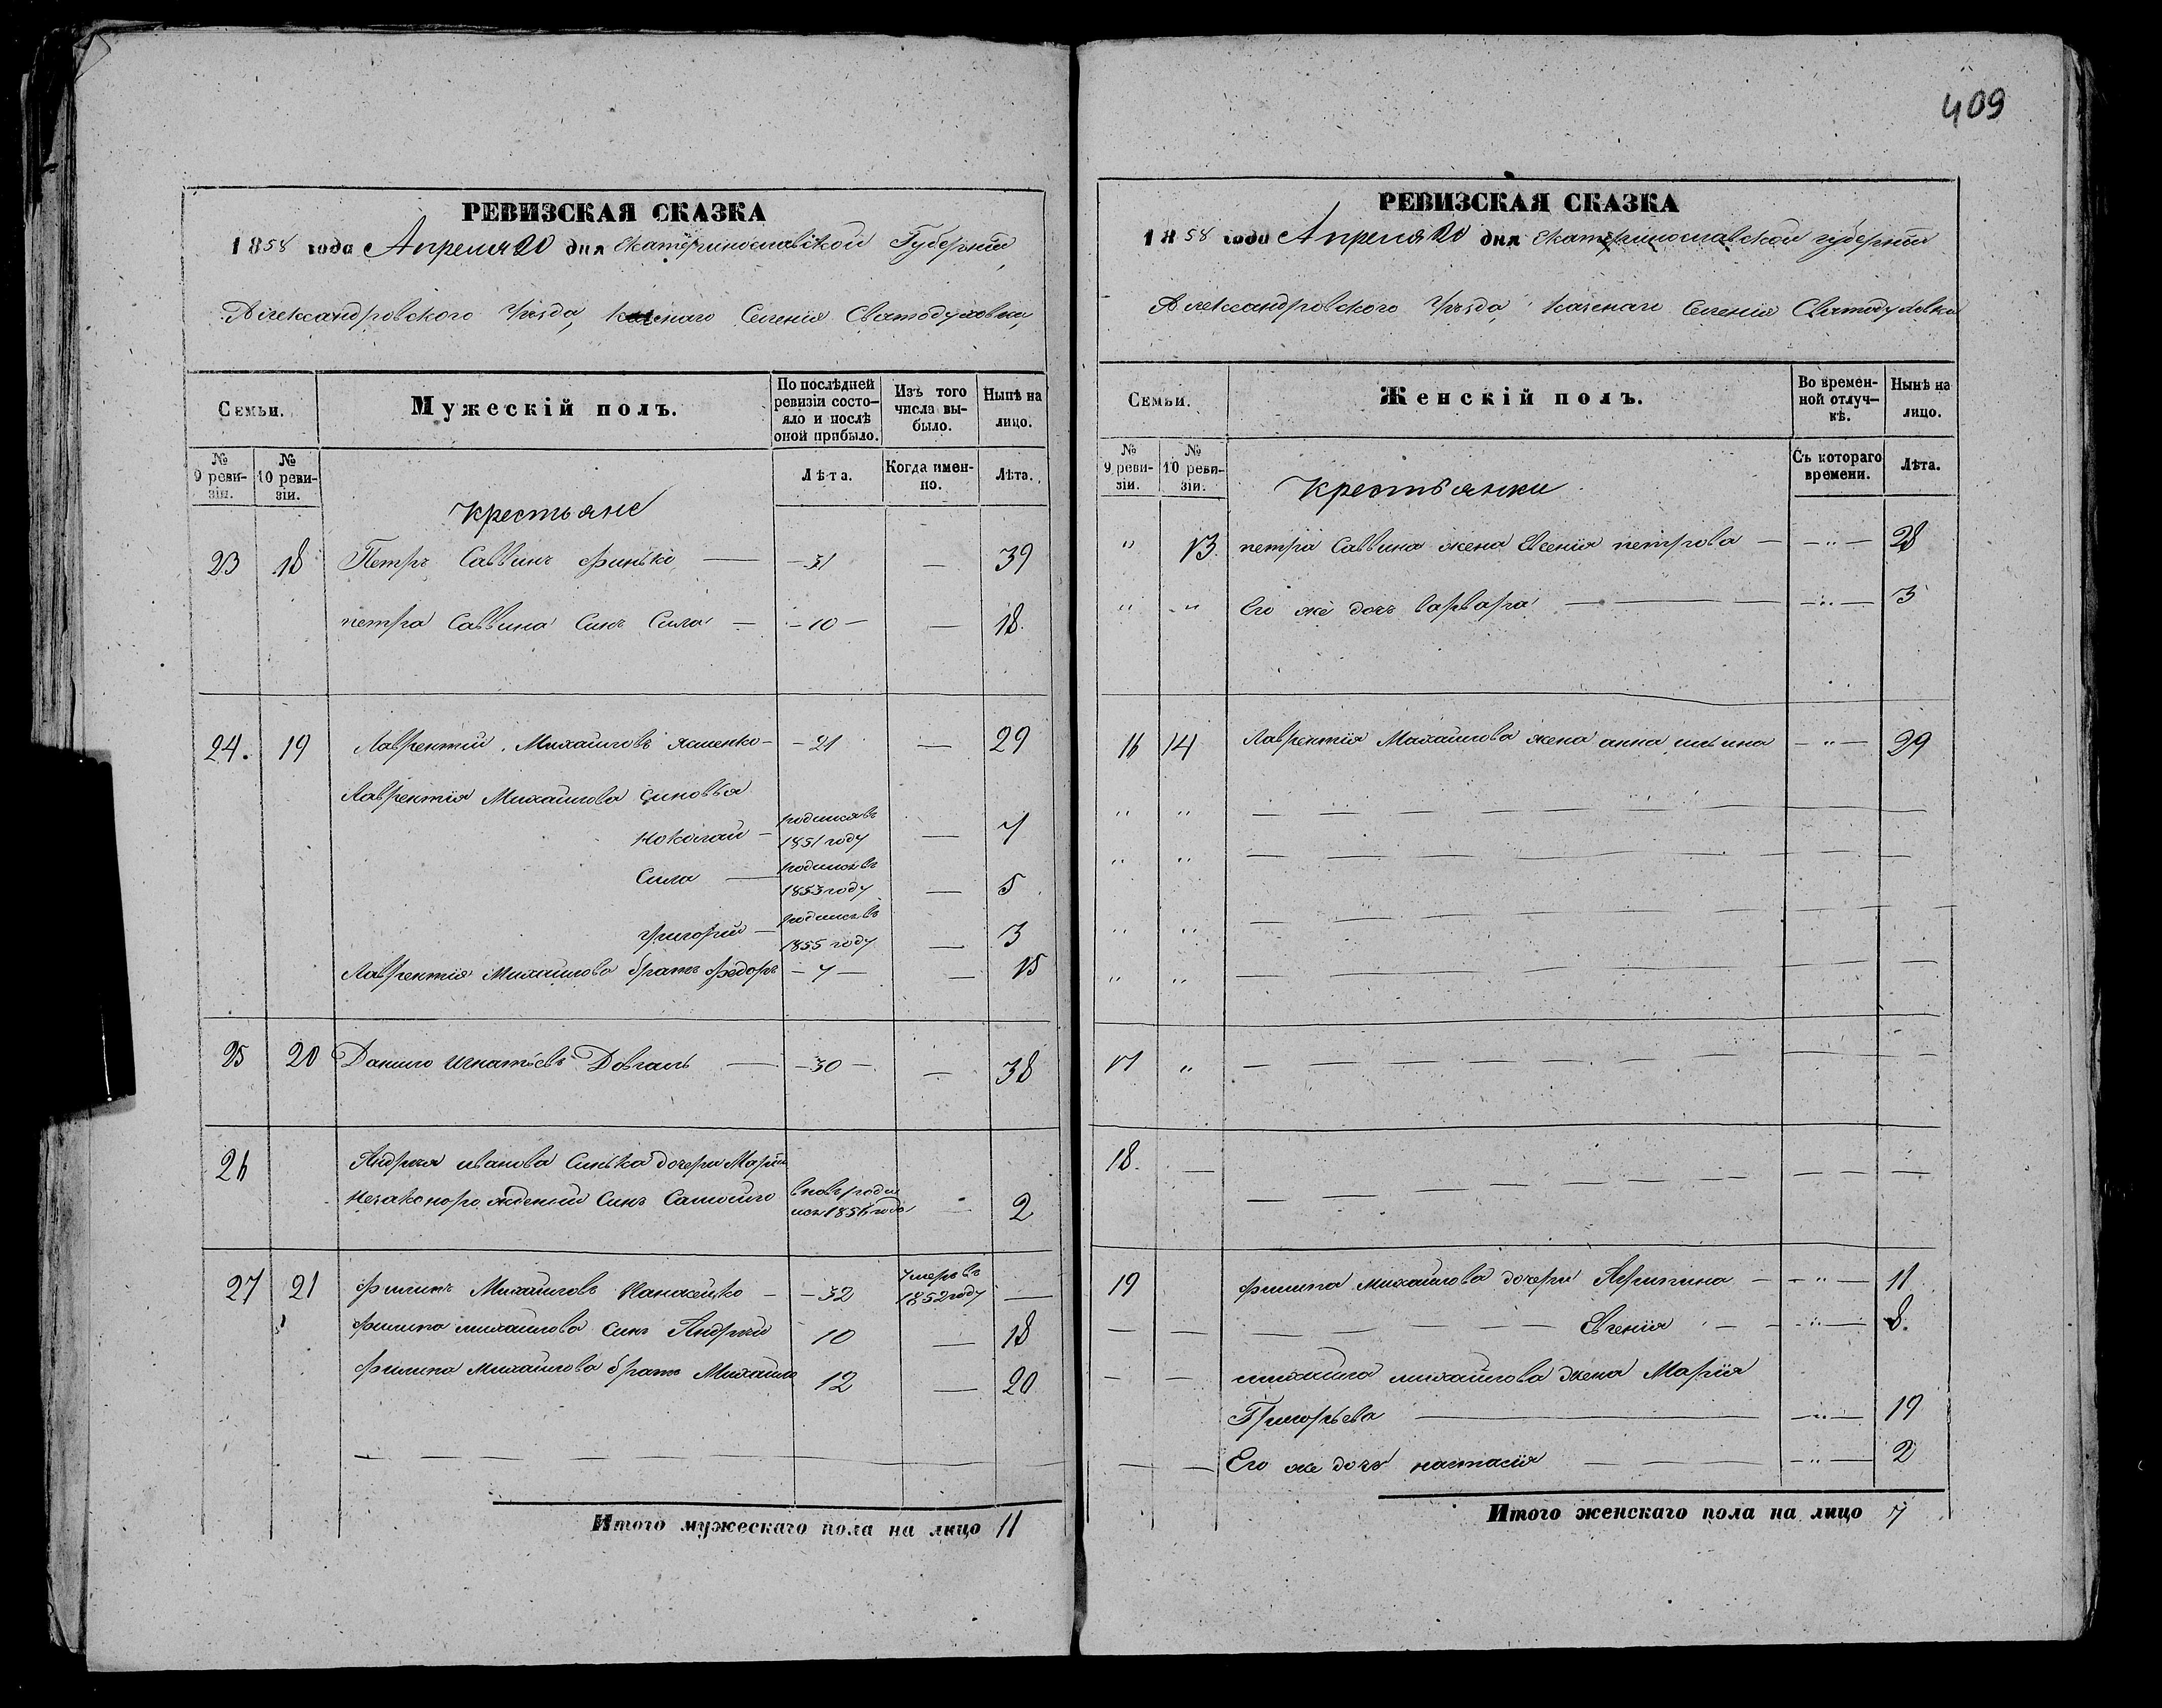 409
РЕВИЗСКАЯ СКАЗКА
1858 года Апреля 20 дня Екатеринославской Губернїи
Александровского Уѣзда, казенаго Селенїя Святодуховки,
Семьи.
Мужескій полъ.
По послѣдней ревизіи состояло и послѣ оной прибыло.
Изъ того числа выбыло.
Нынѣ на лицо.
№ 9 ревизіи.
№ 10 ревизіи.
Лѣта.
Когда именно.
Лѣта.
Крестьяне
23 18 Петръ Саввинъ Финько — 31 — 39
петра Саввина Синъ Сила — 10 — — 18.
24. 19 Лаврентий Михайловъ Яшенко — 21 — 29
Лаврентїя Михайлова Синовья
Николай — родился въ 1851 году — 7
Сила — родился въ 1853 году — 5
григорий — родился въ 1855 году — 3
Лаврентїя Михайлова братъ Федоръ — 7 — — 15
25 20 Данило Игнатьевъ Довгаль — 30 — — 38
26 Андрея иванова Синька дочери Марїи
незаконорожденый Синъ Самойло вновь родился 1856 года — 2
27 21 Филипъ Михайловъ Панасейко — 32 умеръ въ 1852 году —
Филипа михайлова Синъ Андрей 10 — 18
Филипа Михайлова братъ Михайло 12 — 20
Итого мужескаго пола на лицо 11
РЕВИЗСКАЯ СКАЗКА
1858 года Апреля 20 дня Екатеринославской губернїи
Александровского Уѣзда, казенаго Селенїя Святодуховки
Семьи.
Женскій полъ.
Во временной отлучкѣ.
Нынѣ на лицо.
№ 9 ревизіи.
№ 10 ревизіи.
Съ котораго времени.
Лѣта.
Крестьянки
" 13. петра Саввина жена Евгенїя петрова — — " — 28
" " Его же дочь варвара — — " — 3
16 14 Лаврентїя Михайлова жена анна ильина — " — 29
" "
" "
" "
" "
17 "
18. —
19 Филипа михайлова дочери Агрипина — — " — 11
Евгенїя — — " — 8.
— — михайла михайлова жена Марїя
Григорьева — — " — 19
— — Его же дочь настасїя — — " — 2
Итого женскаго пола на лицо 7